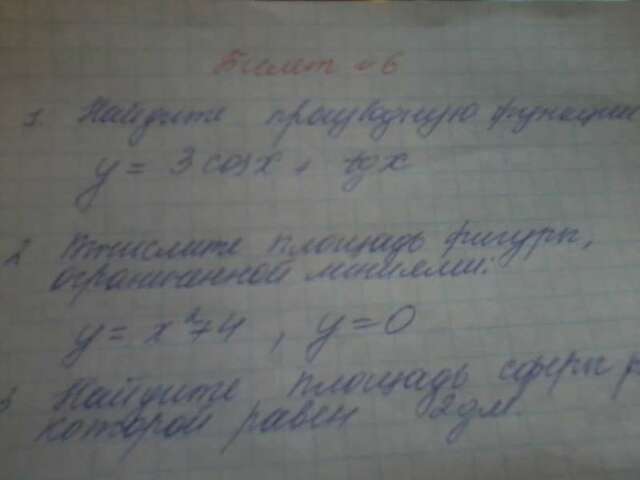 Билет №6
1. Найдите производную функции
y = 3 cosx + tgx
2 Вычислите площадь фигуры,
ограниченной линиями:
y = x²+4, y = 0
3 Найдите площадь сферы р
которой равен 2дм.